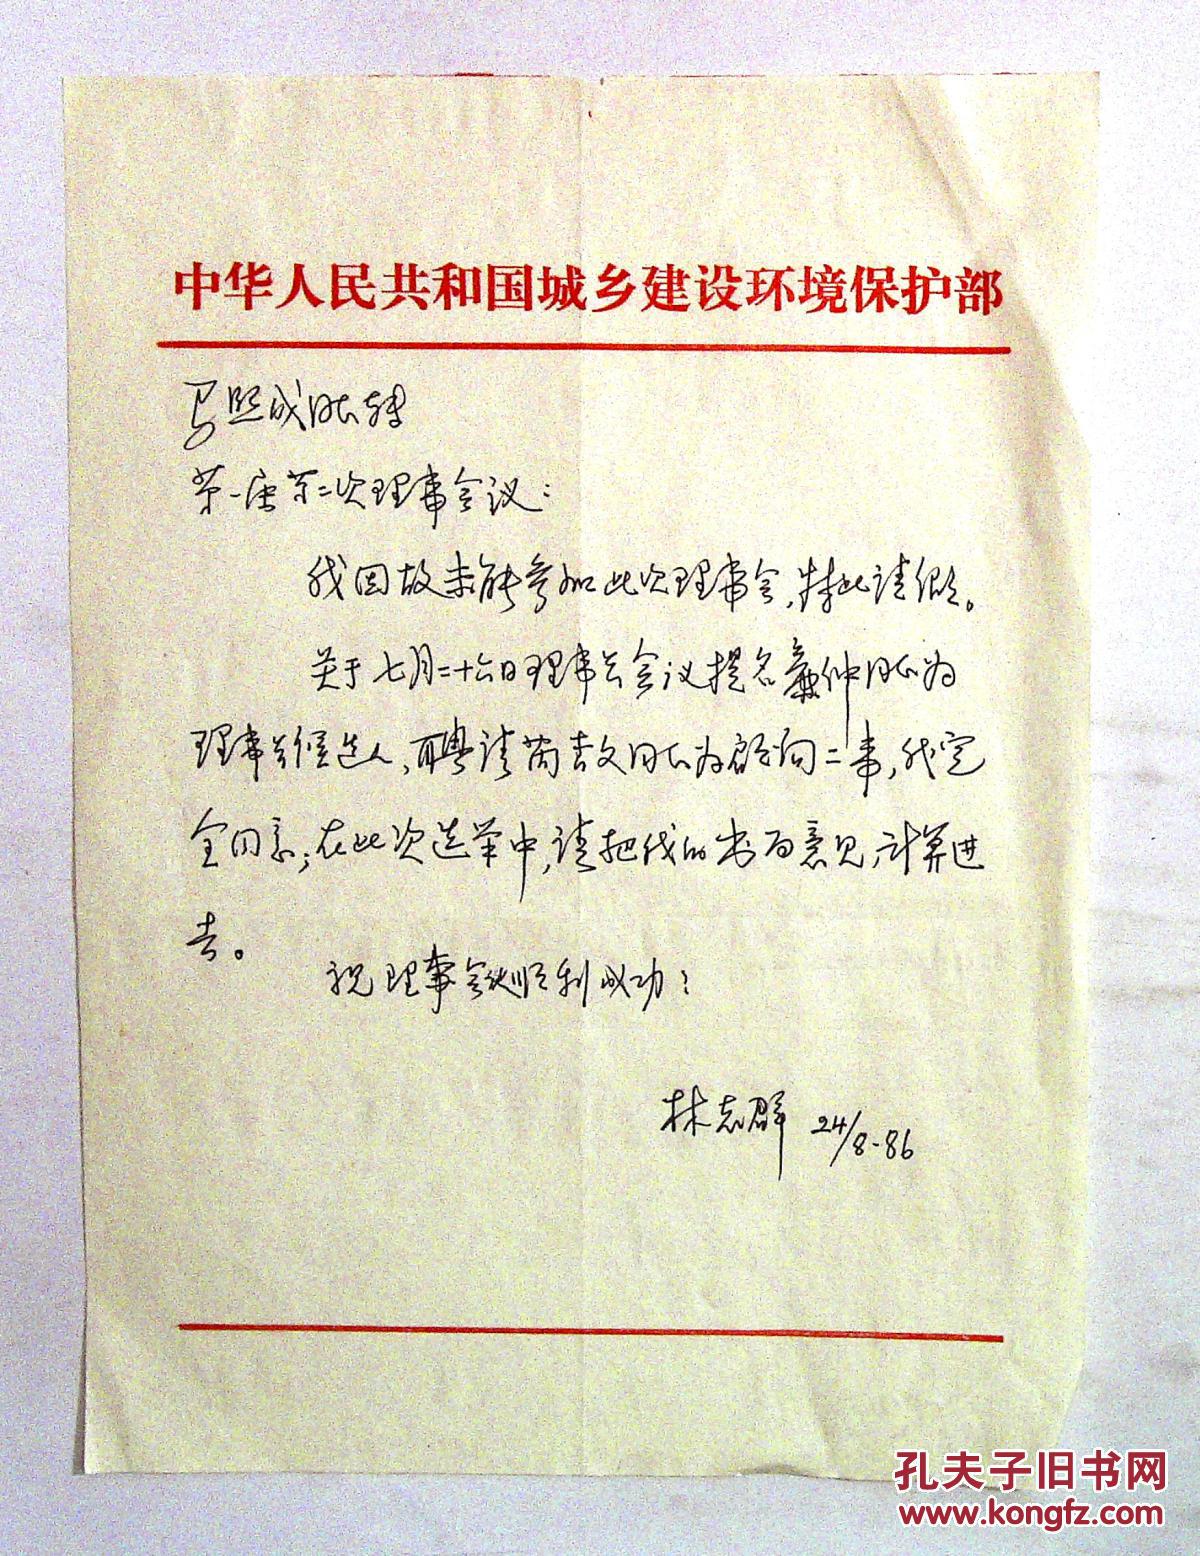 中华人民共和国城乡建设环境保护部
马熙成同志转
第一届第二次理事会议：
我因故未能参加此次理事会，特此请假。
关于七月二十六日理事长会议提名廉仲同志为
理事长候选人，聘请芮杏文同志为顾问二事，我完
全同意；在此次选举中，请把我的书面意见，计算进
去。
祝理事会议顺利成功！
林志群 24/8-86
孔夫子旧书网
www.kongfz.com